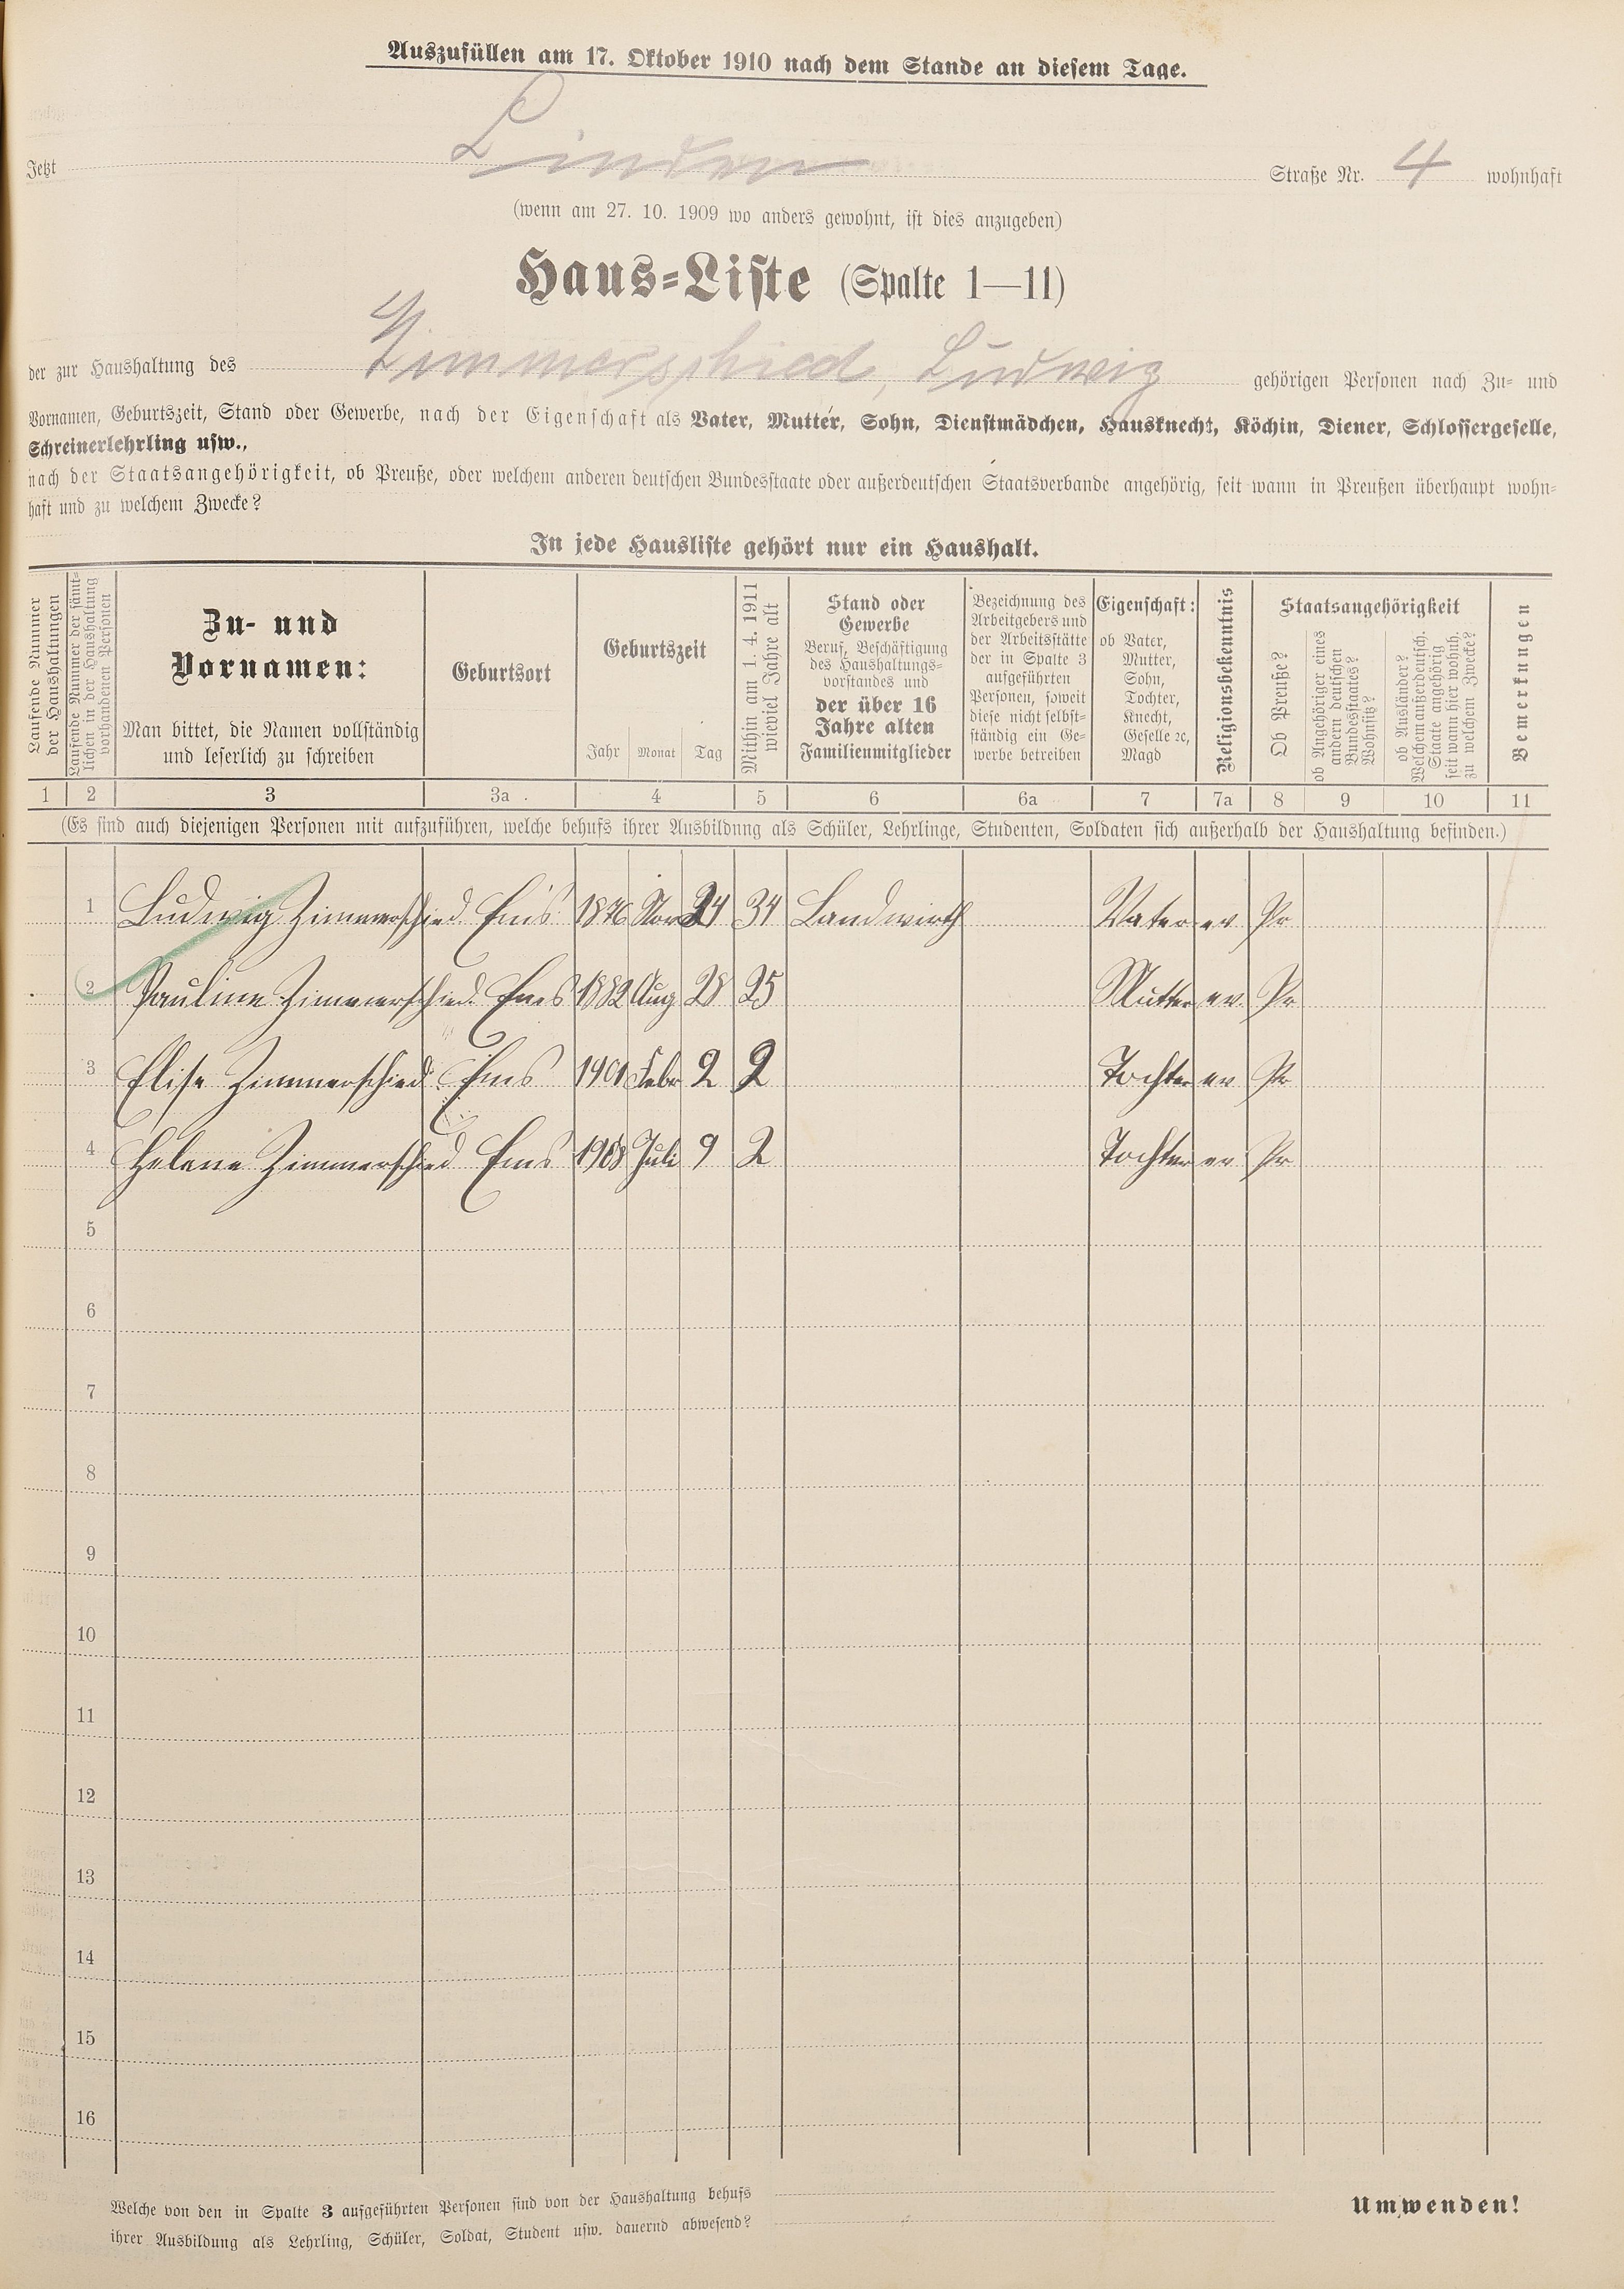 Auszufüllen am 17. Oktober 1910 nach dem Stande an diesem Tage.
Jetzt Linden Straße Nr. 4 wohnhaft
(wenn am 27. 10. 1909 wo anders gewohnt, ist dies anzugeben)
Haus=Liste (Spalte 1—11)
der zur Haushaltung des Zimmerschied, Ludwig gehörigen Personen nach Zu- und
Vornamen, Geburtszeit, Stand oder Gewerbe, nach der Eigenschaft als Vater, Mutter, Sohn, Dienstmädchen, Hausknecht, Köchin, Diener, Schlossergeselle,
Schreinerlehrling usw.,
nach der Staatsangehörigkeit, ob Preuße, oder welchem anderen deutschen Bundesstaate oder außerdeutschen Staatsverbande angehörig, seit wann in Preußen überhaupt wohn-
haft und zu welchem Zwecke?
In jede Hausliste gehört nur ein Haushalt.
Laufende Nummer
der Haushaltungen
Laufende Nummer der sämt-
lichen in der Haushaltung
vorhandenen Personen
Zu- und
Vornamen:
Man bittet, die Namen vollständig
und leserlich zu schreiben
Geburtsort
Geburtszeit
Jahr Monat Tag
Mithin am 1. 4. 1911
wieviel Jahre alt
Stand oder
Gewerbe
Beruf, Beschäftigung
des Haushaltungs-
vorstandes und
der über 16
Jahre alten
Familienmitglieder
Bezeichnung des
Arbeitgebers und
der Arbeitsstätte
der in Spalte 3
aufgeführten
Personen, soweit
diese nicht selbst-
ständig ein Ge-
werbe betreiben
Eigenschaft:
ob Vater,
Mutter,
Sohn,
Tochter,
Knecht,
Geselle ꝛc,
Magd
Religionsbekenntnis
Staatsangehörigkeit
Ob Preuße?
ob Angehöriger eines
andern deutschen
Bundesstaates?
Wohnsitz?
ob Ausländer?
Welchem außerdeutsch.
Staate angehörig
seit wann hier wohnh.
zu welchem Zwecke?
Bemerkungen
1 2 3 3a 4 5 6 6a 7 7a 8 9 10 11
(Es sind auch diejenigen Personen mit aufzuführen, welche behufs ihrer Ausbildung als Schüler, Lehrlinge, Studenten, Soldaten sich außerhalb der Haushaltung befinden.)
1 Ludwig Zimmerschied Ems 1876 Nov 24 34 Landwirth Vater ev Pr
2 Pauline Zimmerschied Ems 1882 Aug 28 25 Mutter ev. Pr
3 Elise Zimmerschied Ems Febr 2 2 Tochter ev Pr
4 Helene Zimmerschied Ems 1908 Juli 9 2 Tochter ev Pr
5
6
7
8
9
10
11
12
13
14
15
16
Welche von den in Spalte 3 aufgeführten Personen sind von der Haushaltung behufs
ihrer Ausbildung als Lehrling, Schüler, Soldat, Student usw. dauernd abwesend?
Umwenden!